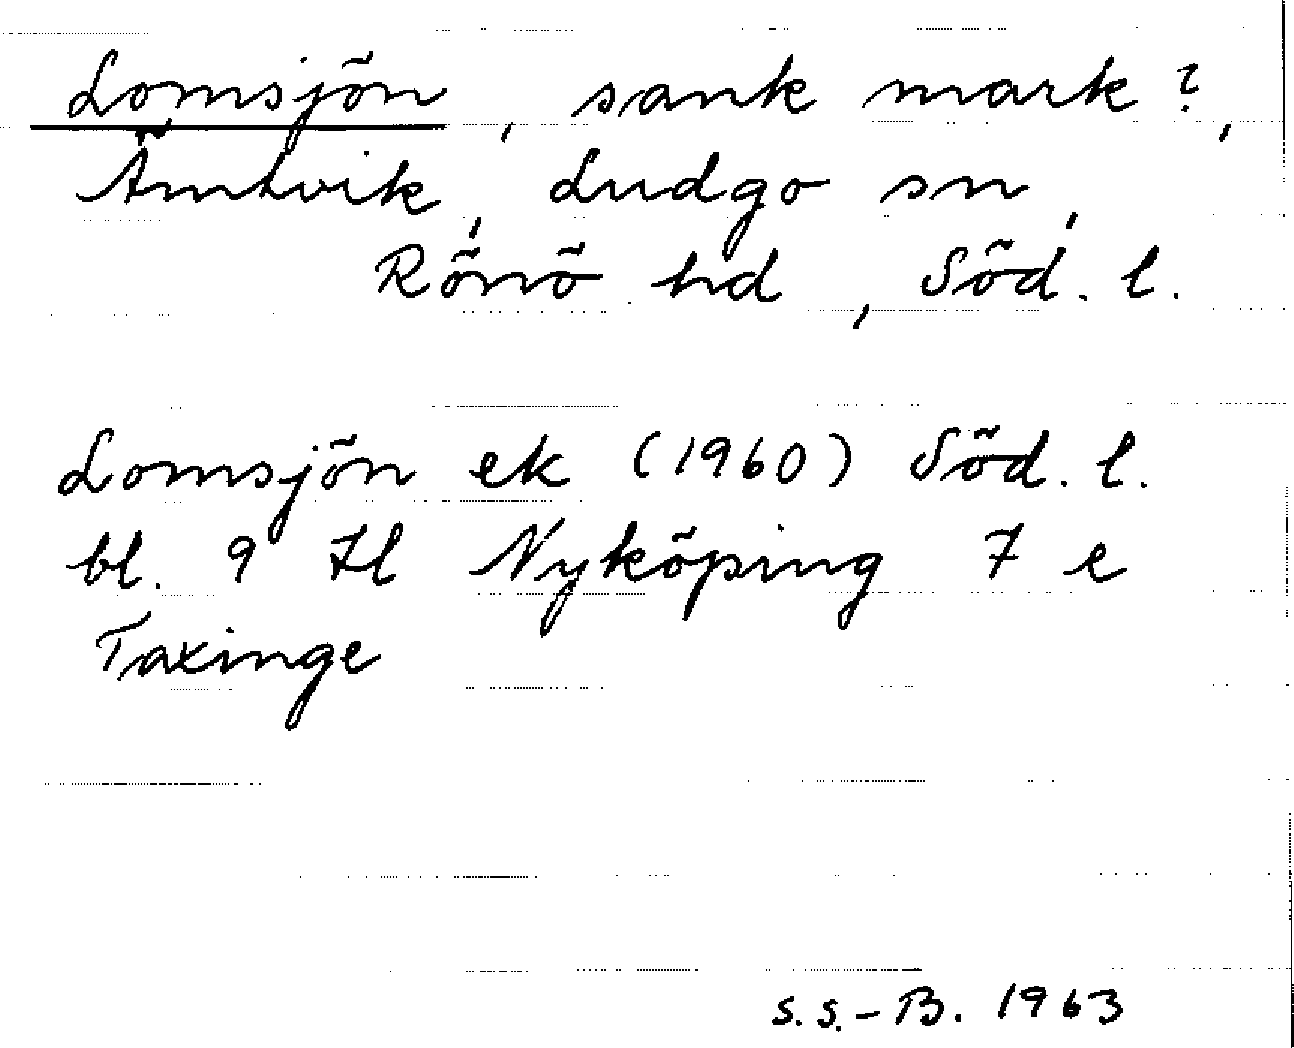 Lomsjön, sank mark?,
Ämtvik, Ludgo sn,
Rönö hd, Söd. l.
Lomsjön ek (1960) Söd. l.
bl. 9 H Nyköping 7 e
Taxinge
S.S.-B. 1963